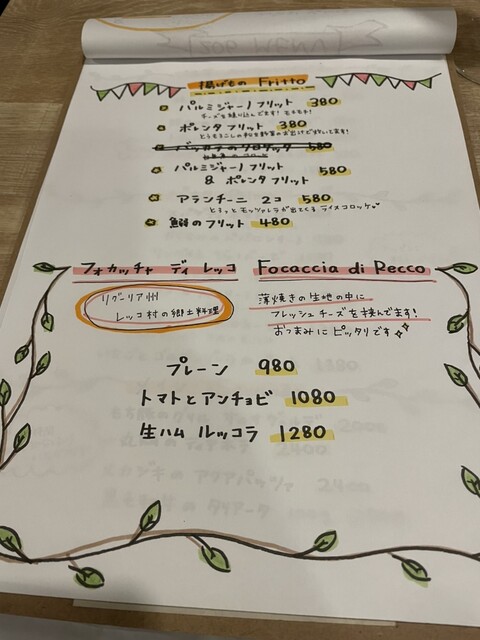 揚げもの Fritto
パルミジャーノフリット 380
チーズを練り込んでます! モチモチ!
ポレンタフリット 380
580
パルミジャーノフリット 580
& ポレンタフリット
アランチーニ 2コ 580
とろっとモッツァレラが出てくる ライスコロッケ
のフリット 480
フォカッチャ ディ レッコ Focaccia di Recco
リグーリア州
レッコ村の郷土料理
薄焼きの生地の中に
フレッシュチーズを挟んでます!
おつまみにピッタリです
プレーン 980
トマトとアンチョビ 1080
生ハム ルッコラ 1280